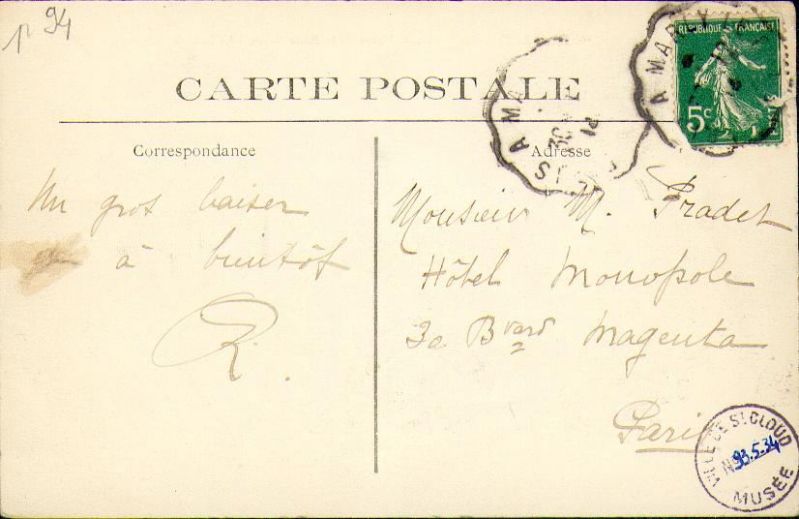 1f 94
RÉPUBLIQUE FRANÇAISE
5c
CARTE POSTALE
A MARLY
S A MA
30
Correspondance
Adresse
Un gros baiser
à bientôt
R.
Monsieur M. Pradet
Hôtel Monopole
30 Bvard Magenta
Paris
VILLE DE ST CLOUD
No 93.5.34
MUSÉE